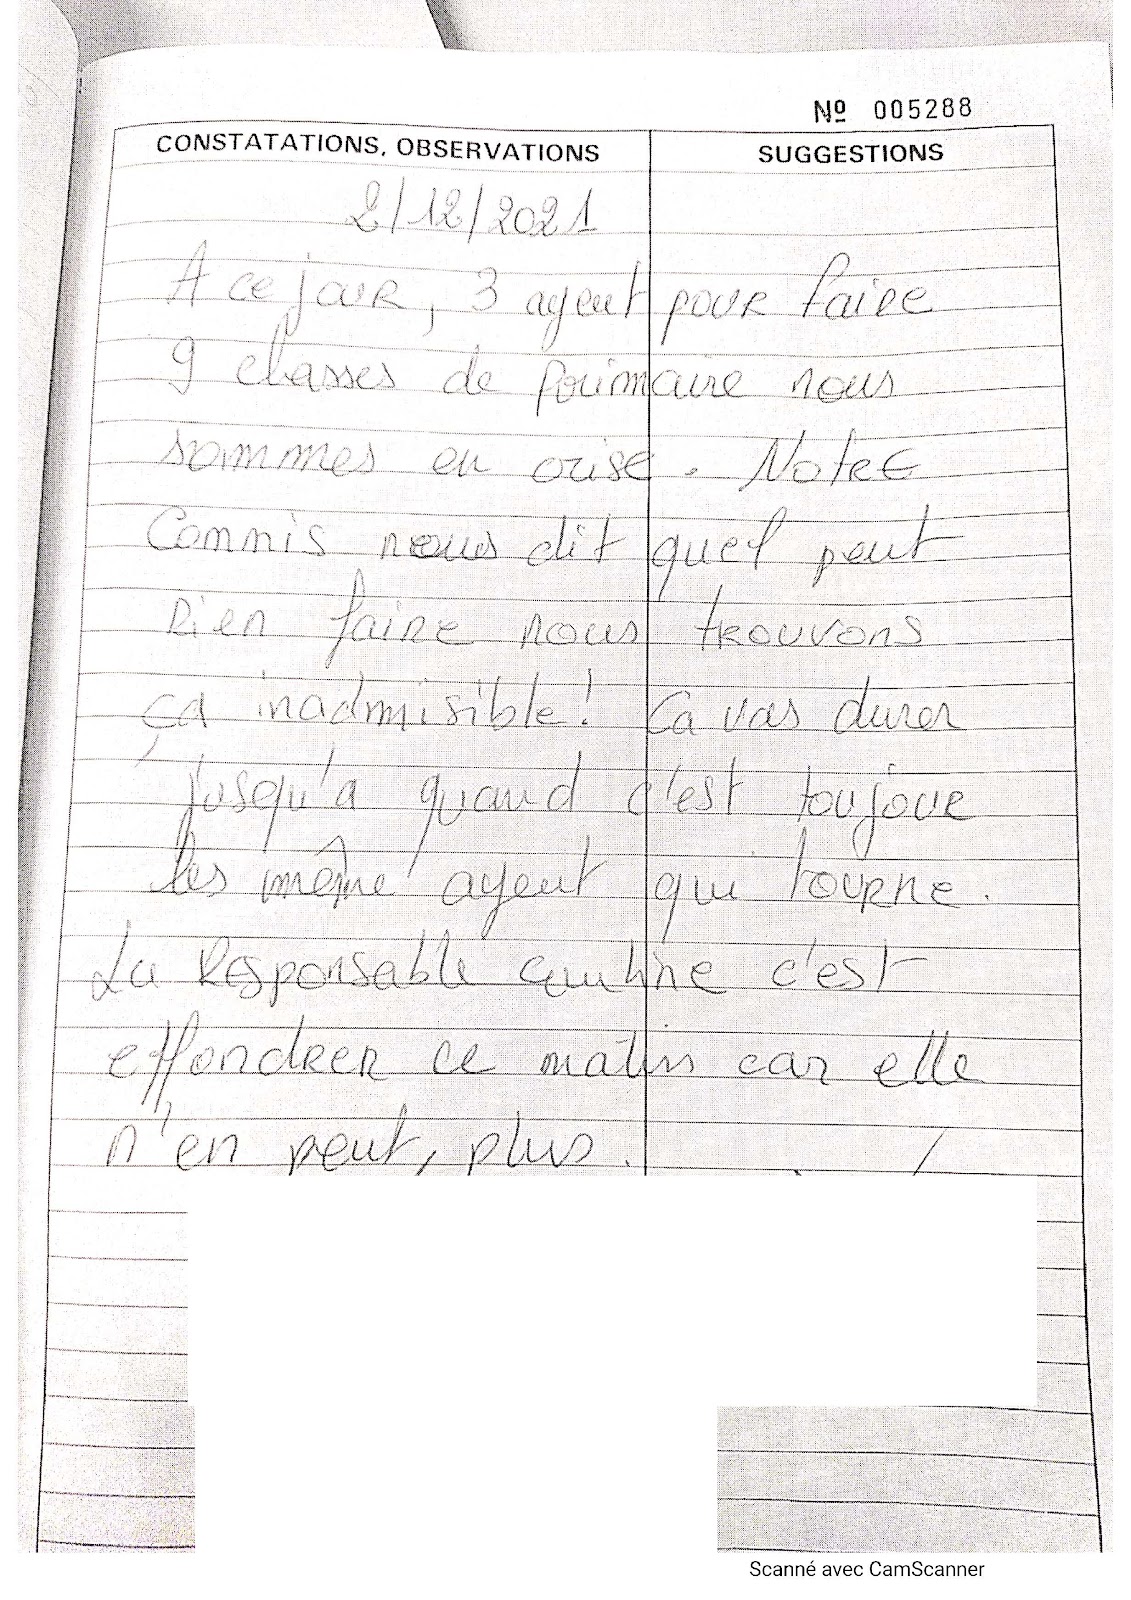 Nº 005288
CONSTATATIONS, OBSERVATIONS SUGGESTIONS
2/12/2021
A ce jour, 3 agent pour faire
9 classes de primaire nous
sommes en crise. Notre
Commis nous dit quel peut
Rien faire nous trouvons
ça inadmisible! Ca vas durer
jusqu'a quand c'est toujour
les même agent qui tourne.
La Responsable cantine c'est
effondrer ce matin car elle
n'en peut, plus.
Scanné avec CamScanner